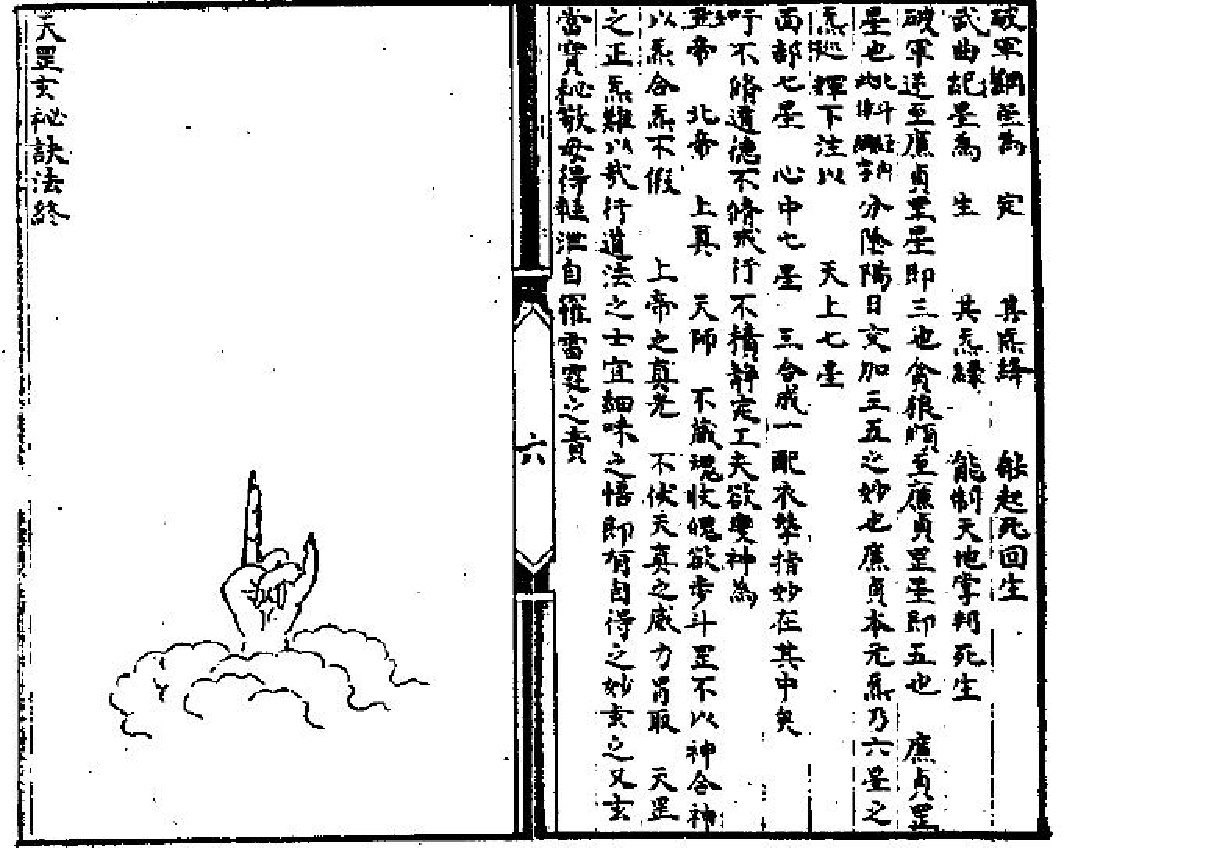 破軍罡星為 定 其炁綠 能起死回生
武曲紀星為 生 其炁綠 能制天地掌判死生
破軍逆至廉貞罡星即三也貪狼順至廉貞罡星即五也 廉貞罡
星也 分陰陽日交加三五之妙也廉貞本元炁乃六星之
炁 輝下注以 天上七星
面部七星 心中七星 三合成一配衣掌指妙在其中矣
行不脩道德不脩戒行不積靜定工夫欲變神為
北帝 上真 天師 不藏魂收魄欲步斗罡不以神合神
以炁合炁不假 上帝之真炁 不伏天真之威力冐取 天罡
之正炁難以哉行道法之士宜細味之悟即有自得之妙玄之又玄
當寶秘敬毋得輕泄自罹雷霆之責
六
天罡玄祕訣法終